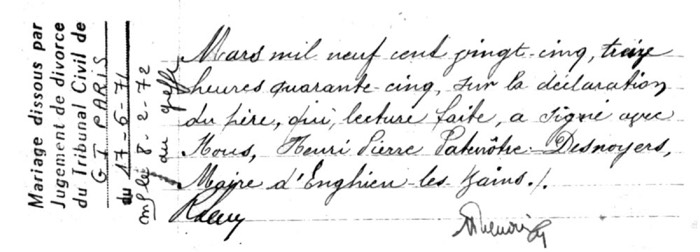 Mariage dissous par
Jugement de divorce
du Tribunal Civil de
GI PARIS
du 17-6-71
le 8-2-72
au greffe
Mars mil neuf cent vingt-cinq, treize
heures quarante-cinq, sur la déclaration
du père, qui, lecture faite, a signé avec
Nous, Henri Pierre Patenôtre-Desnoyers,
Maire d'Enghien les bains./.